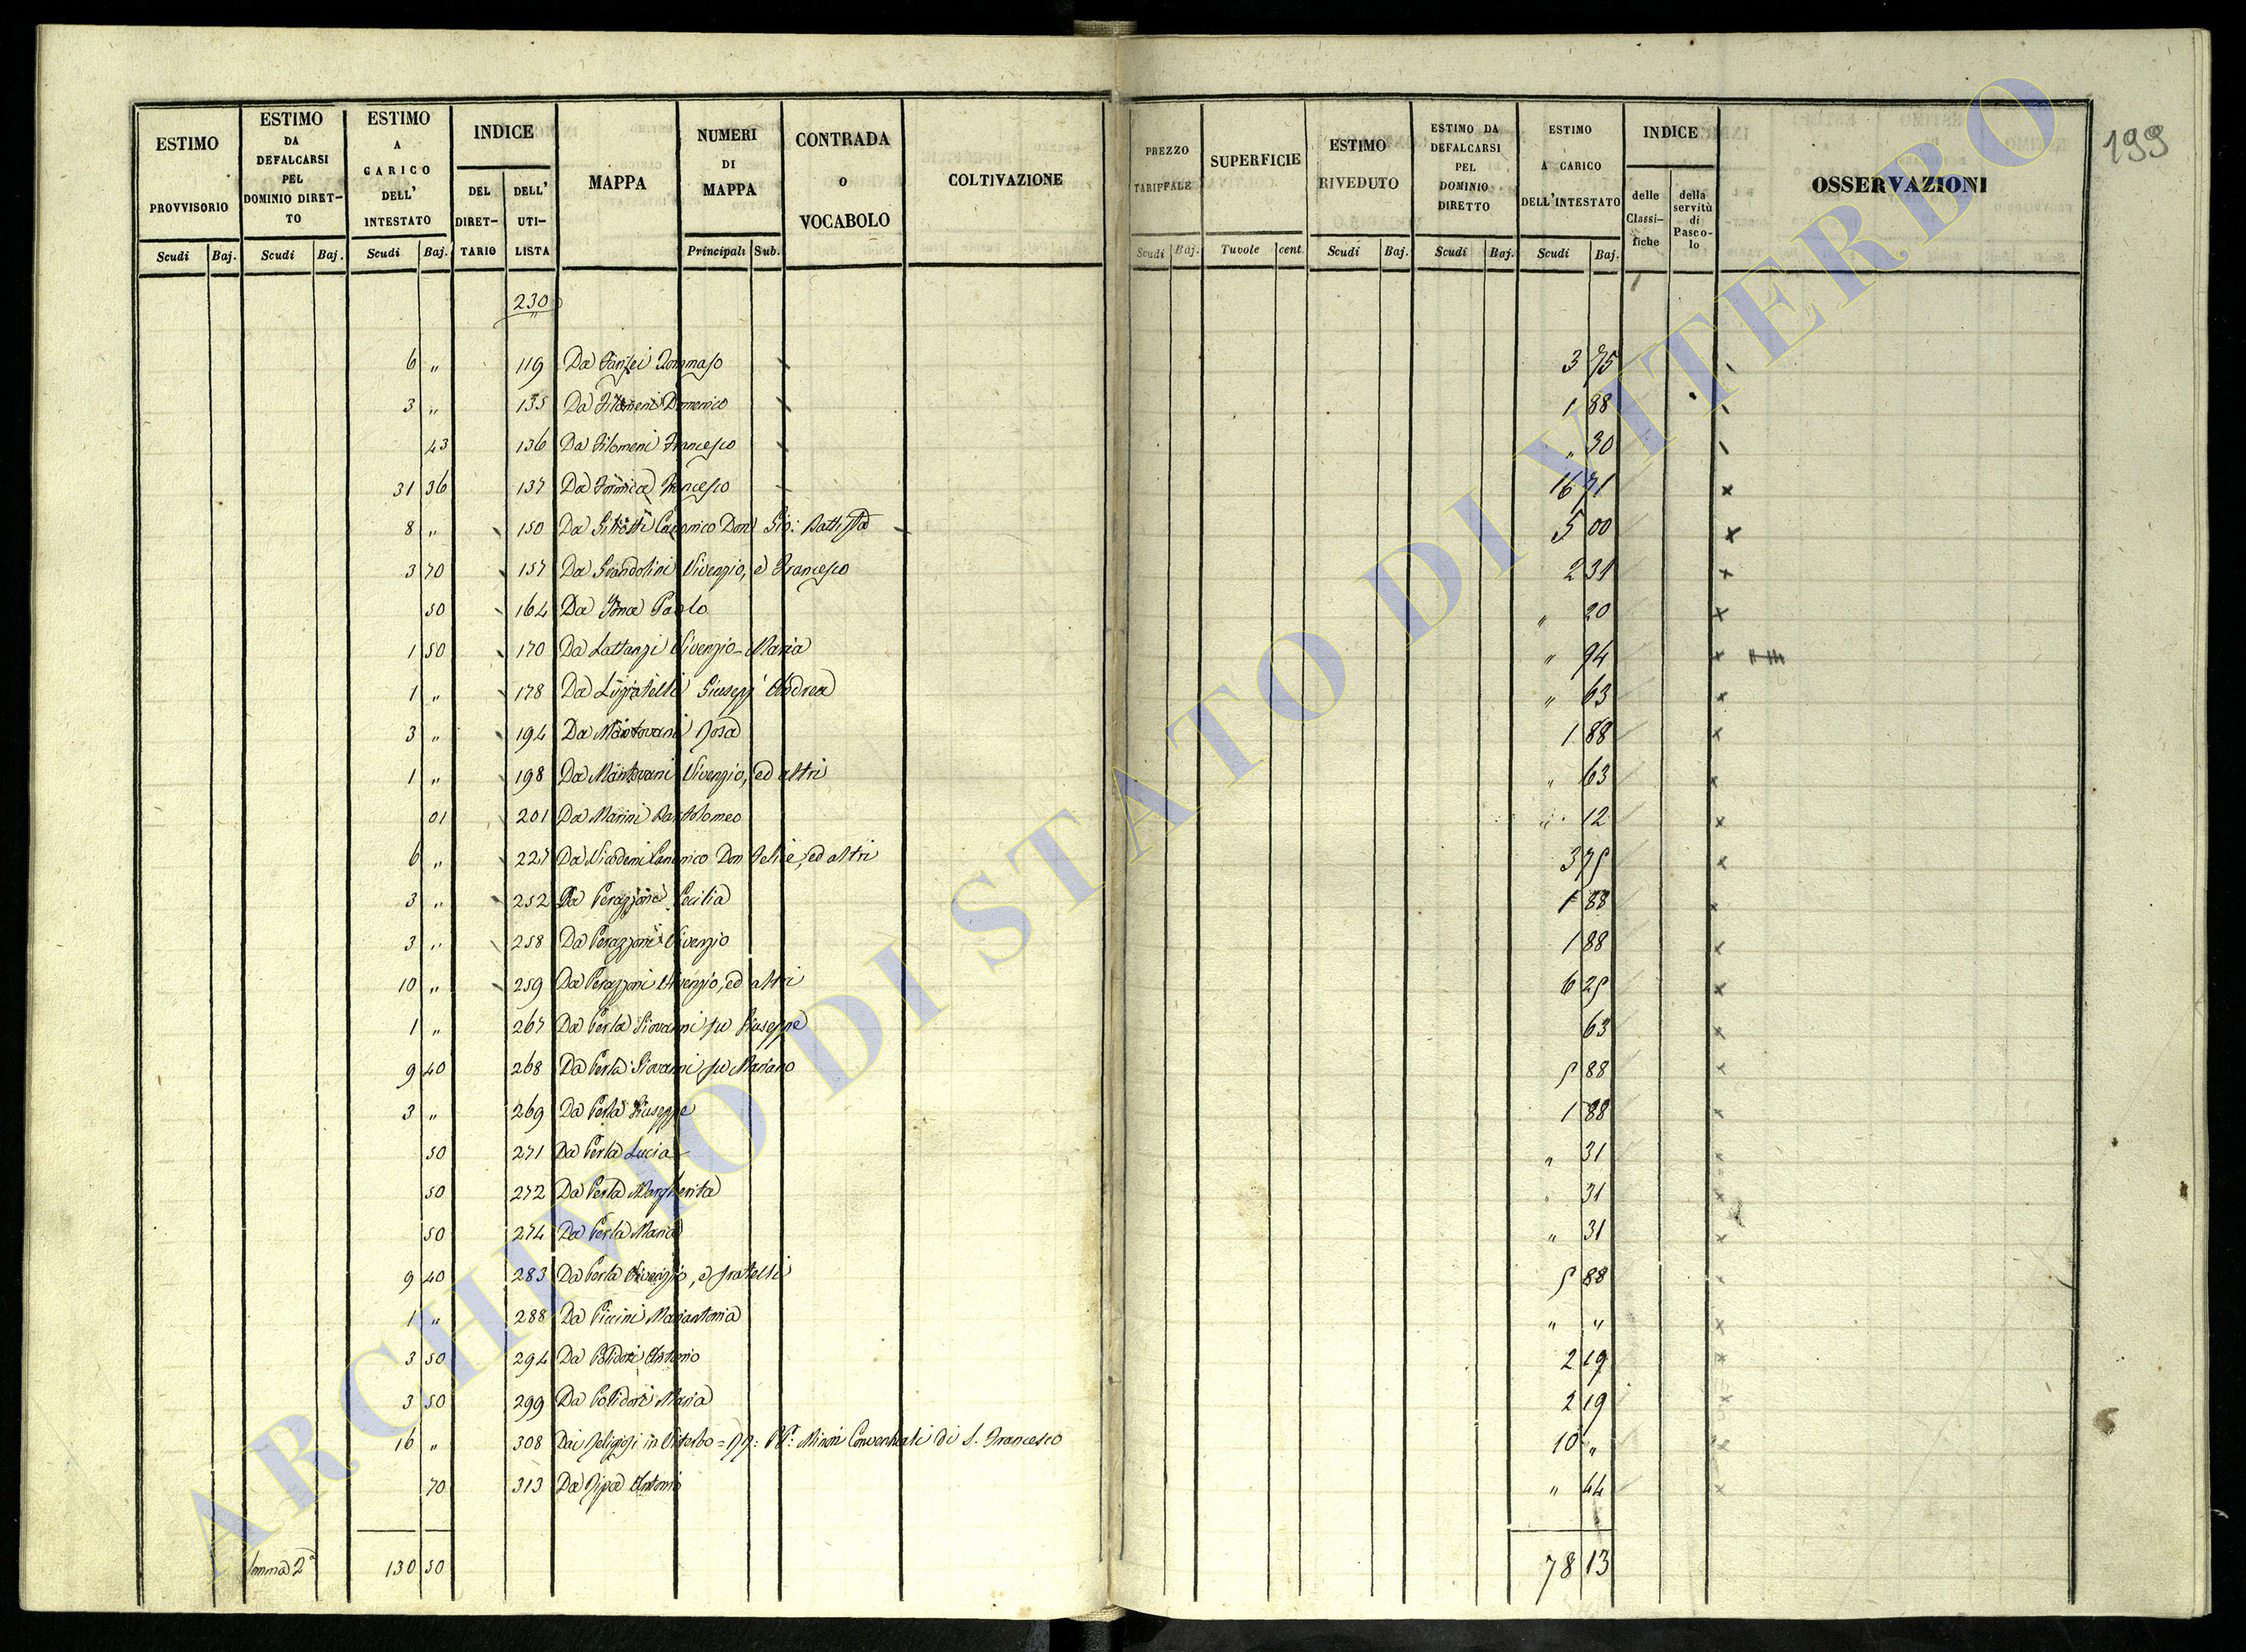 ESTIMO PROVVISORIO | ESTIMO DA DEFALCARSI PEL DOMINIO DIRET-TO | ESTIMO A CARICO DELL' INTESTATO | INDICE | MAPPA | NUMERI DI MAPPA | CONTRADA o VOCABOLO | COLTIVAZIONE | PREZZO TARIFFALE | SUPERFICIE | ESTIMO RIVEDUTO | ESTIMO DA DEFALCARSI PEL DOMINIO DIRETTO | ESTIMO A CARICO DELL'INTESTATO | INDICE | OSSERVAZIONI
DEL DIRET-TARIO | DELL' UTI-LISTA | delle Classi-fiche | della servitù di Pasco-lo
Scudi | Baj. | Scudi | Baj. | Scudi | Baj. | Principali | Sub. | Scudi | Baj. | Tavole | cent. | Scudi | Baj. | Scudi | Baj. | Scudi | Baj.
199
230
6 " 119 Da Tommaso 3 75
3 " 135 Da Filomeni Domenico 1 88
43 136 Da Filomeni Francesco " 30
31 36 137 Da Formica Francesco 16 71
8 " 150 Da Canonico Don Gio: Battista 5 00
3 70 157 Da Grandolini Vivenzio, e Francesco 2 31
50 164 Da Paolo " 20
1 50 170 Da Lattanzi Vivenzio Maria " 94
1 " 178 Da Giusepp' Andrea " 63
3 " 194 Da Mantovani Rosa 1 88
1 " 198 Da Mantovani Vivenzio, ed altri " 63
01 201 Da Marini Bartolomeo " 12
6 " 227 Da Nicodemi Canonico Don Felice, ed altri 3 75
3 " 252 Da Perazzoni Cecilia 1 88
3 " 258 Da Perazzoni Vivenzio 1 88
10 " 259 Da Perazzoni Vivenzio, ed altri 6 25
1 " 267 Da Perla Giovanni fu Giuseppe 63
9 40 268 Da Perla Giovanni fu Mariano 5 88
3 " 269 Da Perla Giuseppe 1 88
50 271 Da Perla Lucia " 31
50 272 Da Perla Margherita " 31
50 274 Da Perla Maria " 31
9 40 283 Da Perla Vivenzio, e fratelli 5 88
1 " 288 Da Piccini Mariantonia " "
3 50 294 Da Polidori Antonio 2 19
3 50 299 Da Polidori Maria 2 19
16 " 308 Dai Religiosi in Viterbo = RR: PP: Minori Conventuali di S. Francesco 10 "
70 313 Da Ripa Antonio " 44
Somma 2ª 130 50 78 13
ARCHIVIO DI STATO DI VITERBO